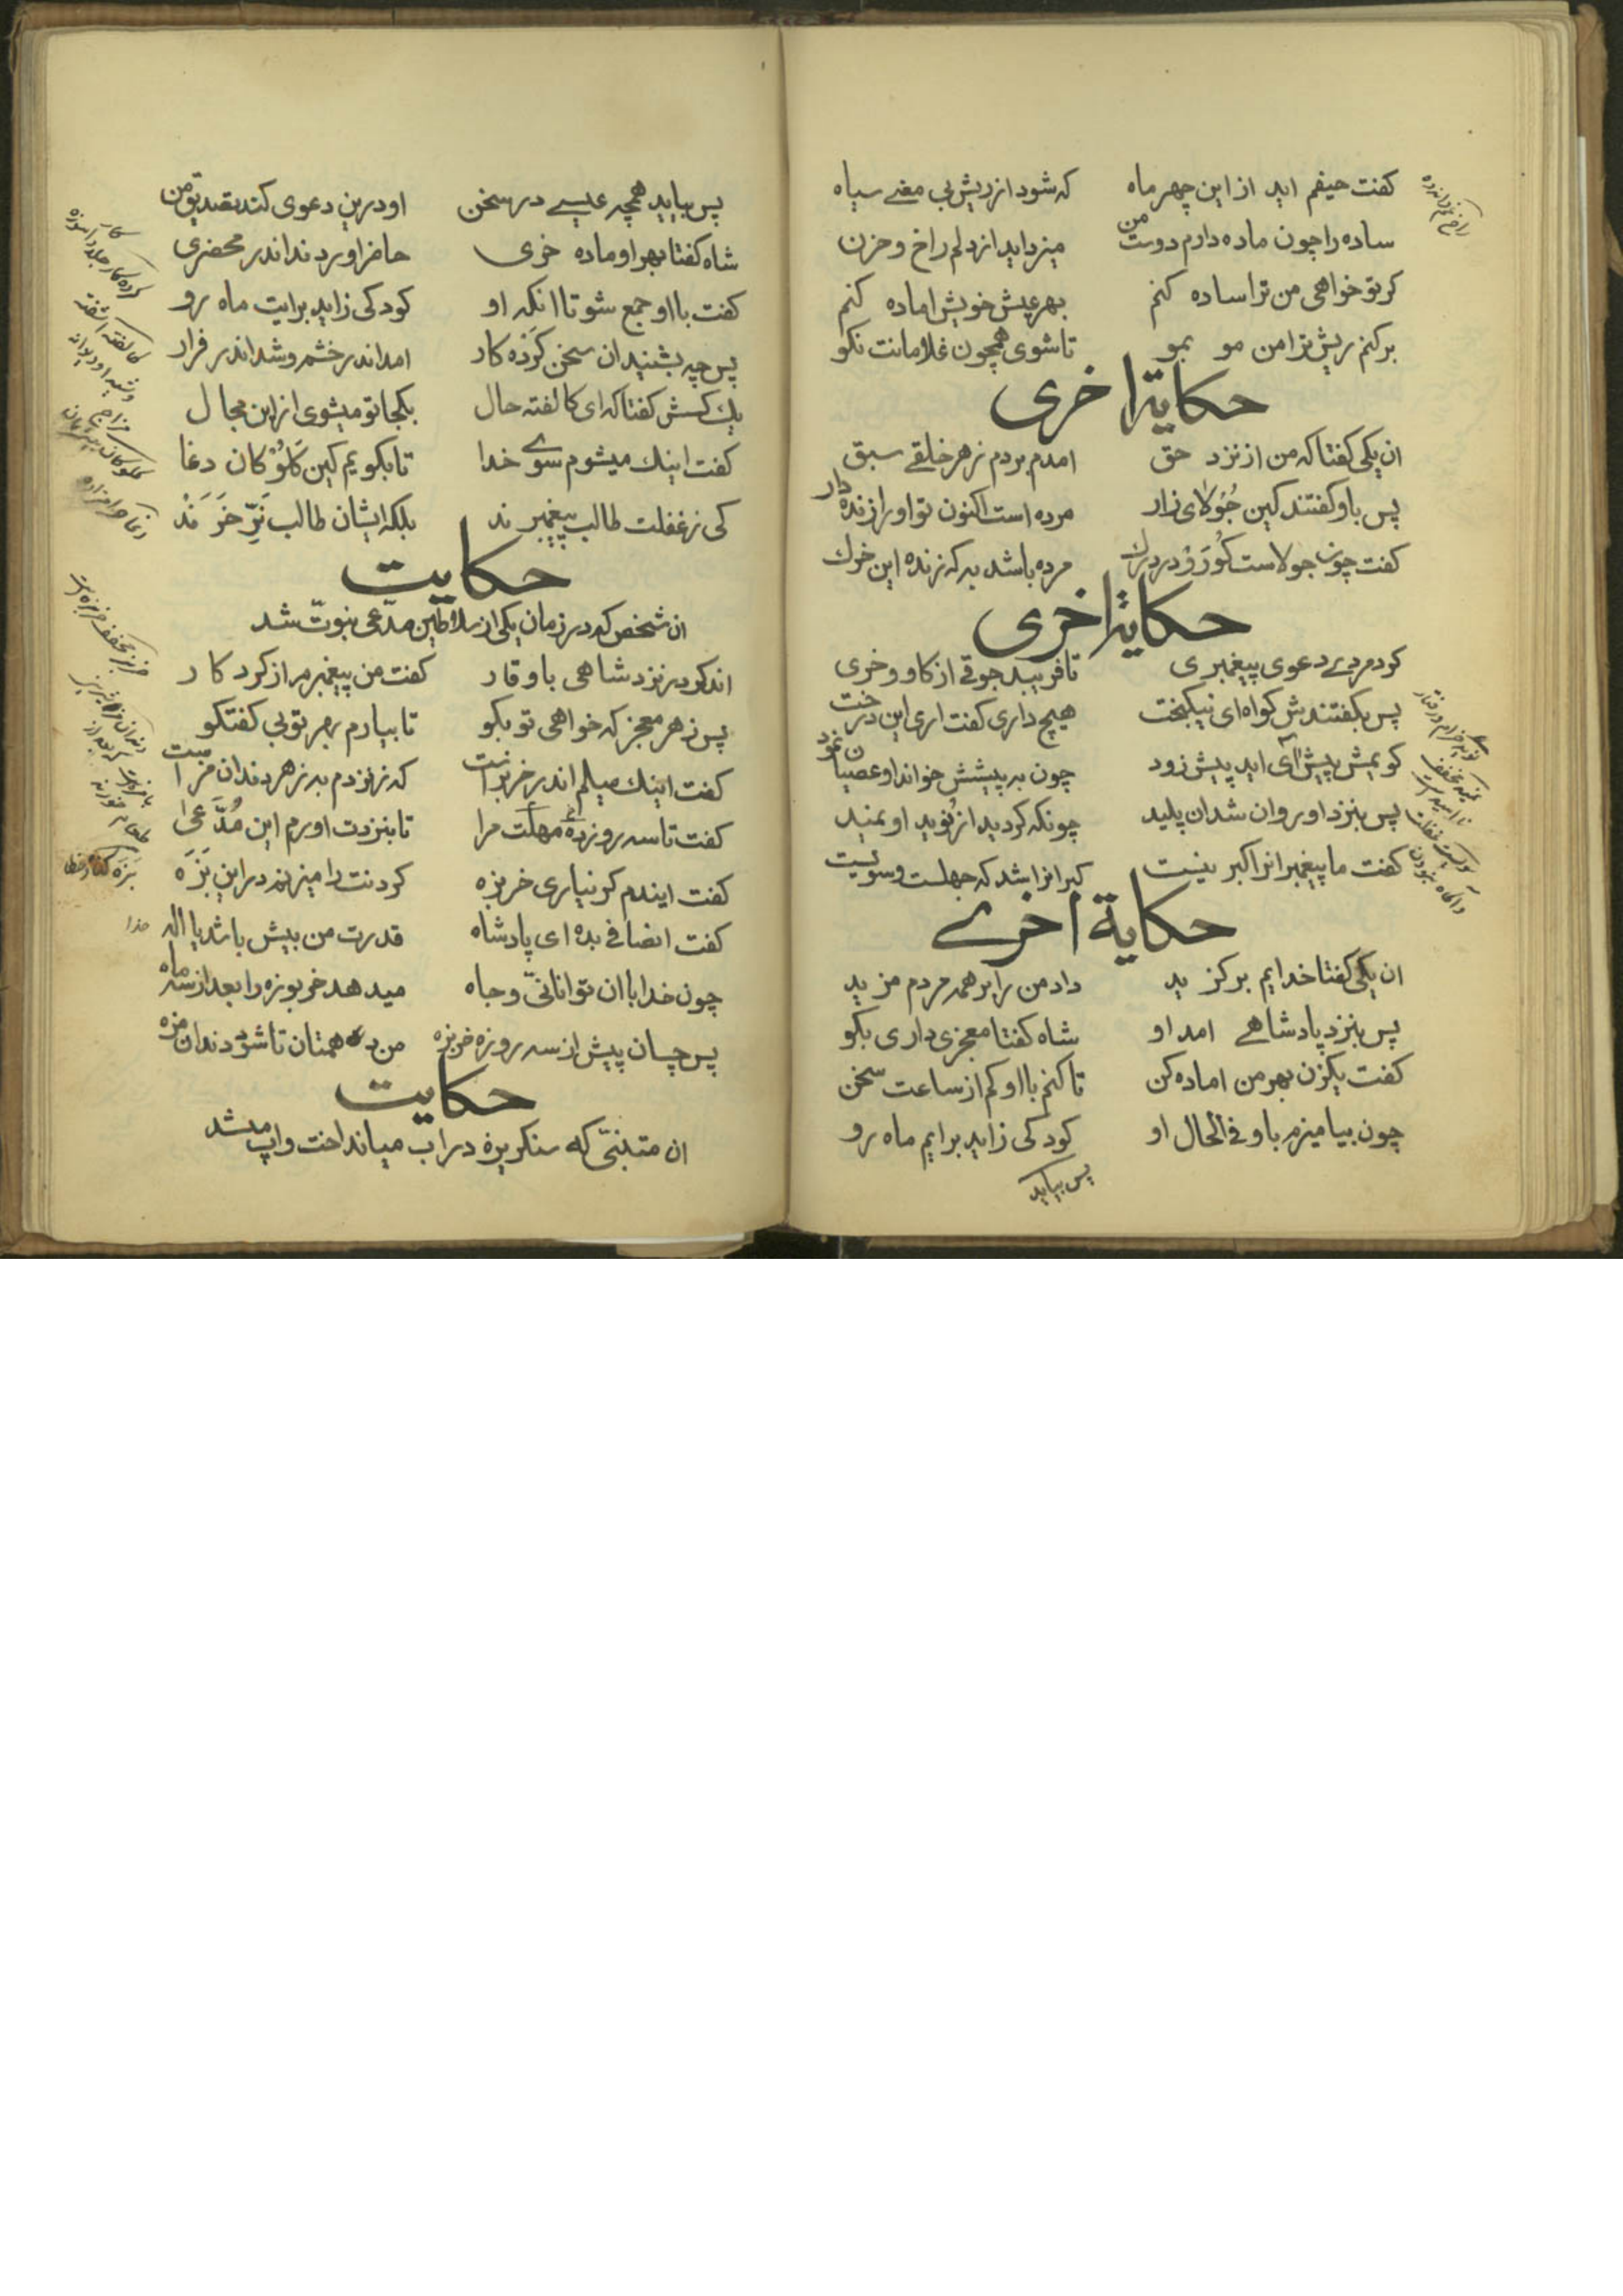 کفت حیفم اید از این چهر ماه که شود از ریش بی معنے سیاه
ساده را چون ماده دارم دوست من میزداید از دلم راخ و حزن
کر تو خواهی من ترا ساده کنم بهر عیش خویش اماده کنم
برکنم ریش ترا من مو بمو تا شوی همچون غلامانت نکو
حکایة اخری
ان یکی کفتا که من از نزد حق امدم بردم ز هر خلقے سبق
پس باو کفتند کین جُولای زار مرده است اکنون تو او را زنده دار
کفت چون جولاست کو رَوْ در درك مرده باشد به که زنده این خرك
حکایة اخری
کرد مردے دعوی پیغمبری تا فریبد جوقے از کاو و خری
پس بکفتندش کواه ای نیکبخت هیچ داری کفت اری این درخت
کویمش پیش آی اید پیش زود چون به پیشش خواند او عصیان نمود
پس بنزد او روان شد ان پلید چونکه کردید از نُوید او نمید
کفت ما پیغمبرانرا کبر نیست کبر انرا شد که جهلست و سوئیست
حکایة اخرے
ان یکی کفتا خدایم بر کزید داد من را بر همه مردم مزید
پس بنزد پادشاهے امد او شاه کفتا معجزی داری بکو
کفت یکزن بهر من اماده کن تا کنم با او کم از ساعت سخن
چون بیامیزم باو فی الحال او کودکی زاید برایم ماه رو
پس بیاید
پس بیاید همچه عیسے در سخن او درین دعوی کند تصدیق من
شاه کفتا بهر او ماده خری حاضر اوردند اندر محضری
کفت با او جمع شو تا انکه او کودکی زاید برایت ماه رو
پس چه بشنید ان سخن کَرَده کار امد اندر خشم و شد اندر فرار
یك کسش کفتا که ای کالفته حال بکجا تو میشوی از این مجال
کفت اینك میشوم سوے خدا تا بکویم کین کَلُوْکان دغا
کی ز غفلت طالب پیغمبرند بلکه ایشان طالب نَرّ خَرَنَدْ
حکایت
ان شخص که در زمان یکی از سلاطین مدّعی نبوتّ شد
اند کو در نزد شاهی با وقار کفت من پیغمبرم از کردکار
پس ز هر معجز که خواهی تو بکو تا بیارم بهر تو بی کفتکو
کفت اینك میلم اندر خربزانست که نزدم به ز هر دندان مزانست
کفت تا سه روز ده مهلت مرا تا بنزدت اورم این مُدَّعیٰ
کفت ایندم کر نیاری خربزه کردنت را میزنم در این بَزَه
کفت انصافی بده ای پادشاه قدرت من بیش باشد یا اله
چون خدا با ان توانائیّ و جاه میدهد خربوزه را بعد از سه ماه
پس چسان پیش از سه روزه خربزه من دهمتان تا شود دندان مزه
حکایت
ان متنبّی که سنکریزه در اب میانداخت و اب میشد